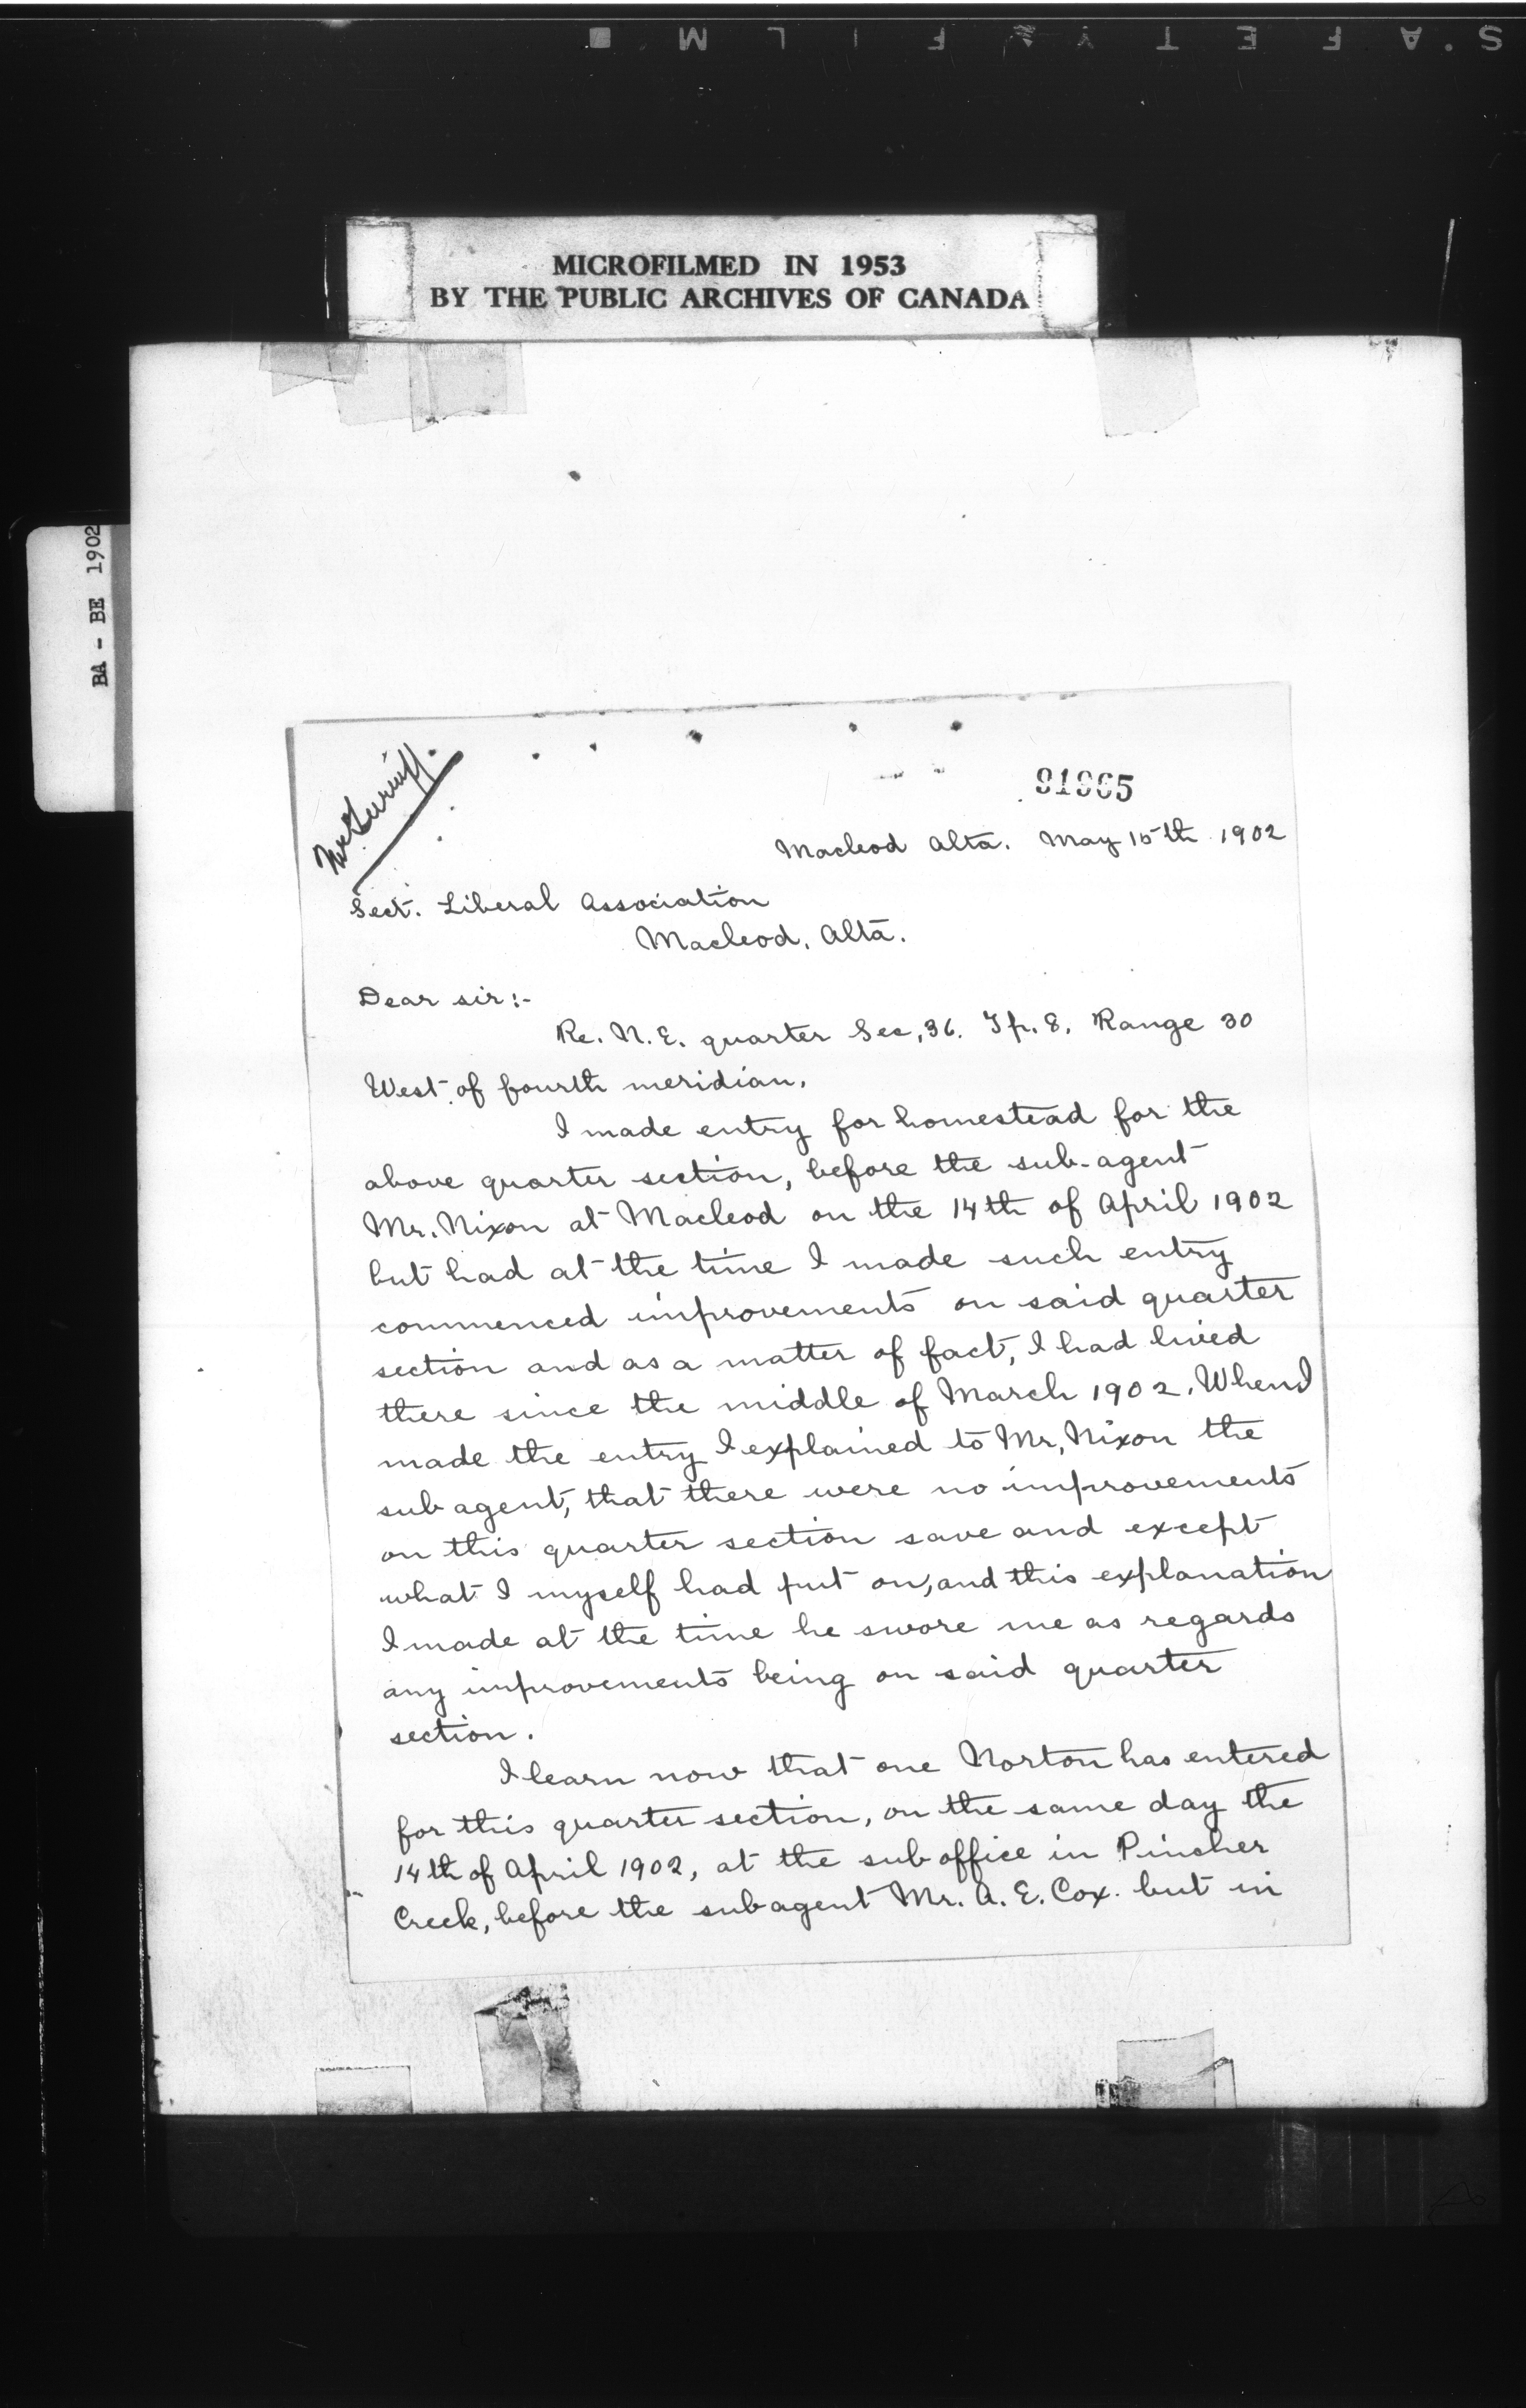 S.AFETY FILM
MICROFILMED IN 1953
BY THE PUBLIC ARCHIVES OF CANADA
BA - BE 1902
91965
Macleod Alta. May 15th 1902
Sect. Liberal Association
Macleod, Alta.
Dear sir:-
Re. N.E. quarter Sec, 36. Tp. 8, Range 30
West of fourth meridian.
I made entry for homestead for the
above quarter section, before the sub-agent
Mr. Nixon at Macleod on the 14th of April 1902
but had at the time I made such entry
commenced improvements on said quarter
section and as a matter of fact, I had lived
there since the middle of March 1902. When I
made the entry I explained to Mr, Nixon the
sub agent, that there were no improvements
on this quarter section save and except
what I myself had put on, and this explanation
I made at the time he swore me as regards
any improvements being on said quarter
section.
I learn now that one Norton has entered
for this quarter section, on the same day the
14th of April 1902, at the sub office in Pincher
Creek, before the subagent Mr. A. E. Cox. but in